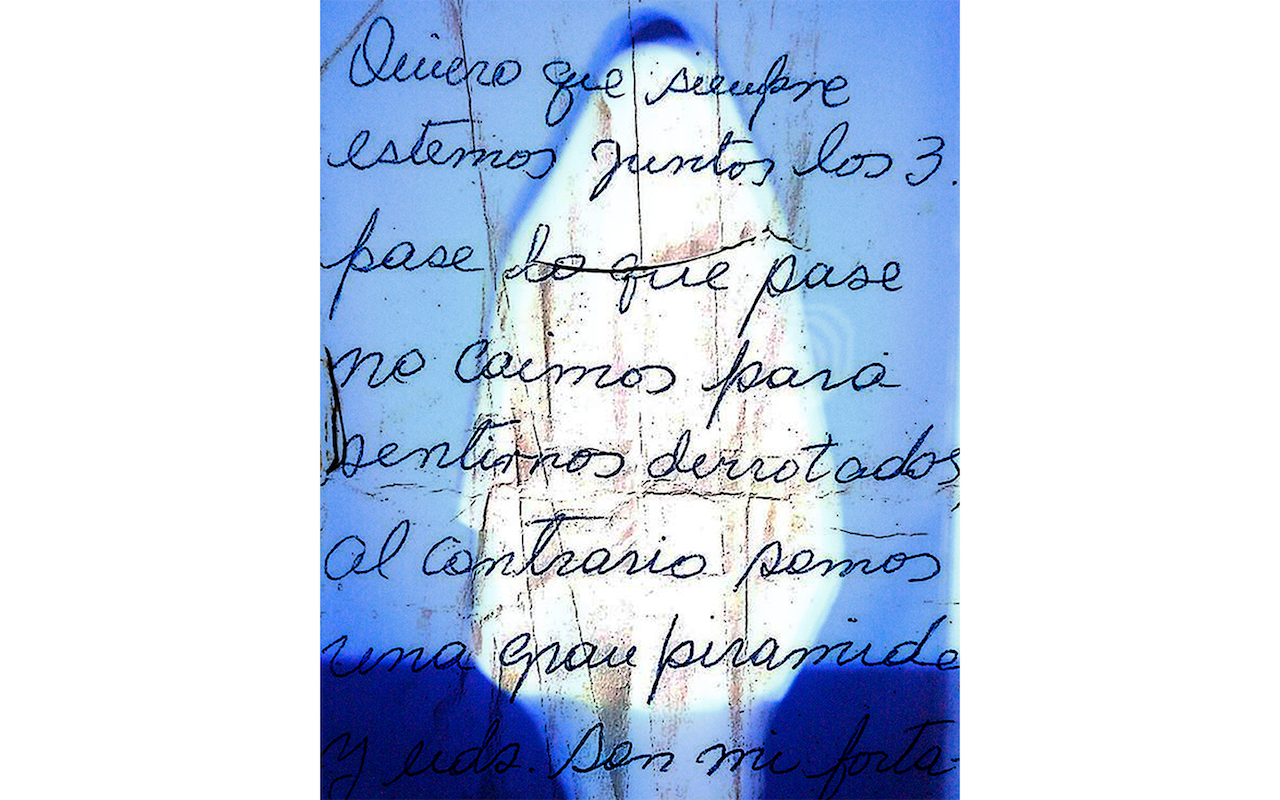 Quiero que siempre
estemos juntos los 3.
pase lo que pase
no caimos para
sentirnos derrotados,
al contrario somos
una gran piramide
y uds. son mi forta-